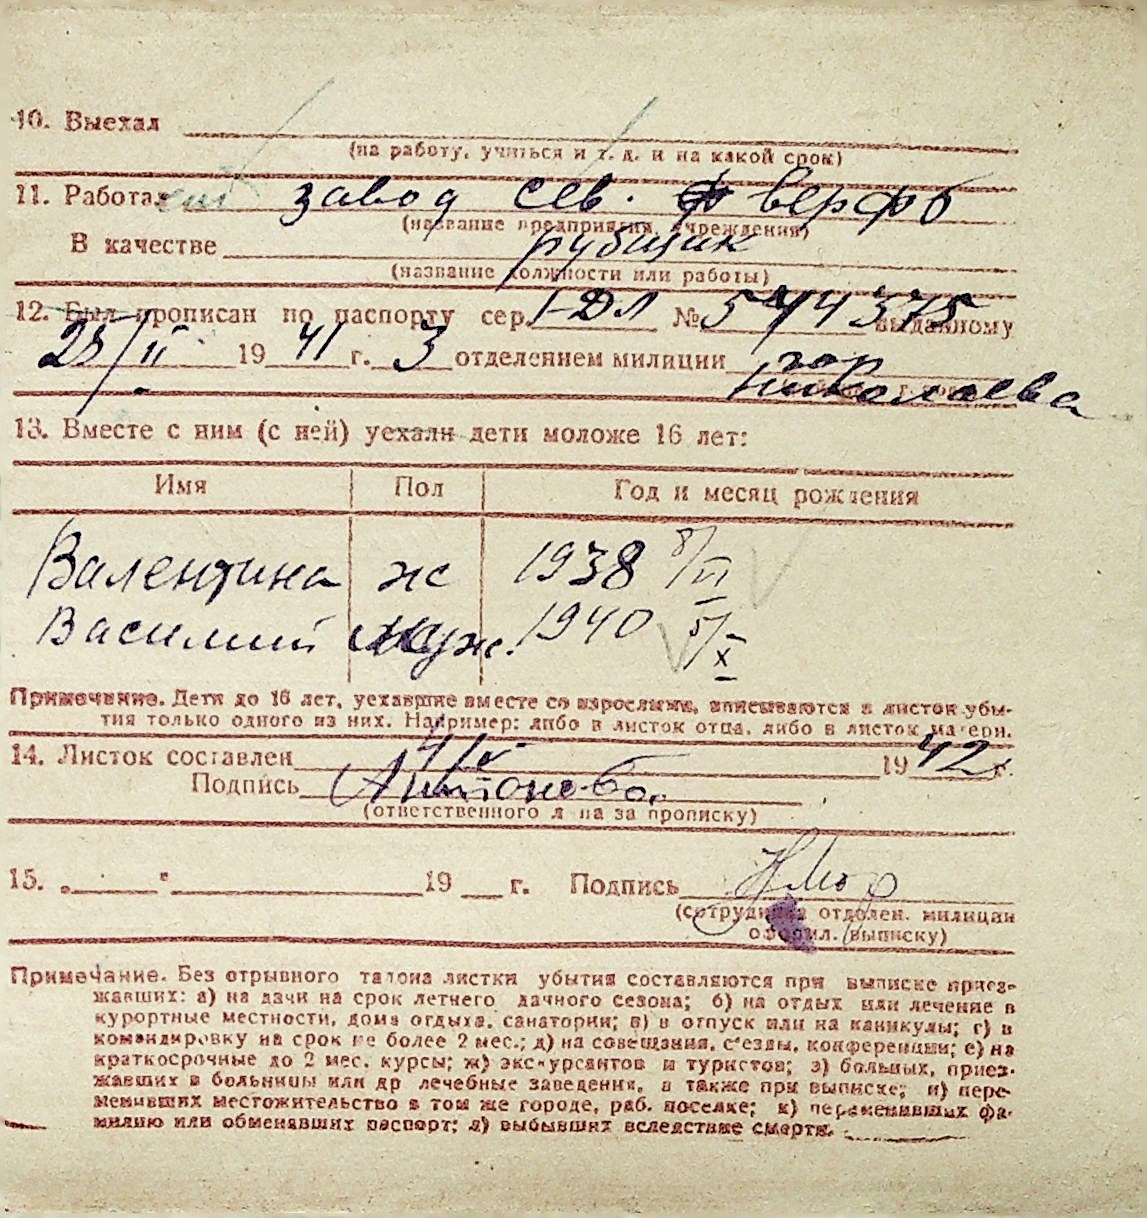 10. Выехал
(на работу, учиться и т. д. и на какой срок)
11. Работал завод сев. верфь
(название предприятия, учреждения)
В качестве рубщик
(название должности или работы)
12. Был прописан по паспорту сер. I-ДЛ № 544375 выданному
28/II 1941 г. 3 отделением милиции гор
Николаева
13. Вместе с ним (с ней) уехали дети моложе 16 лет:
Имя Пол Год и месяц рождения
Валентина ж 1938 8/VI
Василий муж. 1940 5/X
Примечание. Дети до 16 лет, уехавшие вместе со взрослыми, вписываются в листок убы-
тия только одного из них. Например: либо в листок отца, либо в листок матери.
14. Листок составлен 4/V 1942 г.
Подпись Антонова
(ответственного л-ца за прописку)
15. „ " 19 г. Подпись
(сотрудника отделен. милиции
оформил. выписку)
Примечание. Без отрывного талона листки убытия составляются при выписке приез-
жавших: а) на дачи на срок летнего дачного сезона; б) на отдых или лечение в
курортные местности, дома отдыха, санатории; в) в отпуск или на каникулы; г) в
командировку на срок не более 2 мес.; д) на совещания, съезды, конференции; е) на
краткосрочные до 2 мес. курсы; ж) экскурсантов и туристов; з) больных, приез-
жавших в больницы или др лечебные заведения, а также при выписке; и) пере-
менивших местожительство в том же городе, раб. поселке; к) переменивших фа-
милию или обменявших паспорт; л) выбывших вследствие смерти.